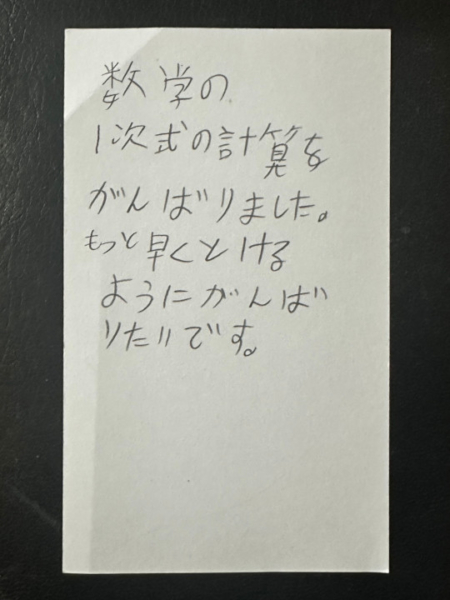 数学の
1次式の計算を
がんばりました。
もっと早くとける
ようにがんば
りたいです。